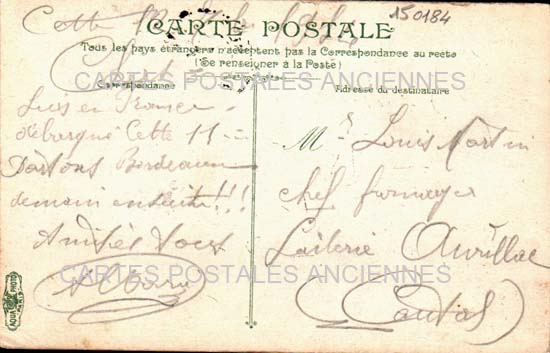 150184
Cette
CARTE POSTALE
Tous les pays étrangers n'acceptent pas la Correspondance au recto
(Se renseigner à la Poste)
CARTES POSTALES ANCIENNES
Correspondance
Adresse du destinataire
Suis en France
débarqué Cette 11
Partons Bordeaux
demain ensuite!!!
Amitiés
Mr Louis Martin
chef fromager
Laiterie Aurillac
(Cantal)
CARTES POSTALES ANCIENNES
AQUA PHOTO
PARIS